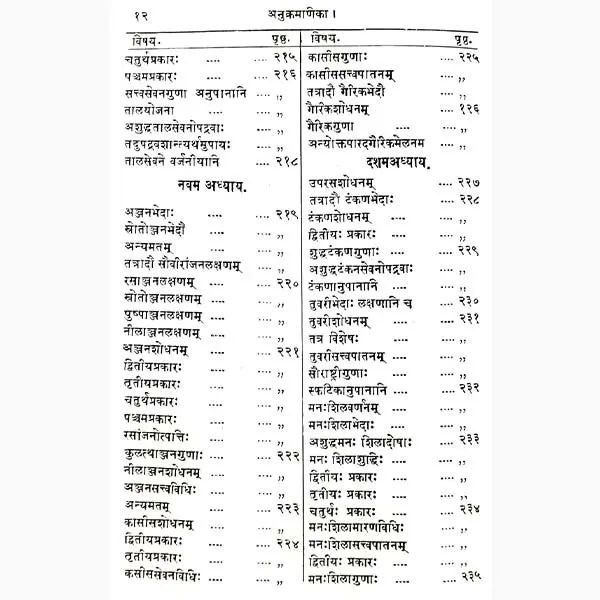 १२ अनुक्रमाणिका।
विषय. पृष्ठ.
चतुर्थप्रकारः .... .... २१५
पञ्चमप्रकारः .... .... २१६
सत्त्वसेवनगुणा अनुपानानि .... ,,
तालयोजना .... .... ,,
अशुद्धतालसेवनोपद्रवाः .... ,,
तदुपद्रवशान्त्यर्थमुपायः .... ,,
तालसेवने वर्जनीयानि .... २१८
नवम अध्याय.
अञ्जनभेदाः .... .... २१९
स्रोतोञ्जनभेदौ .... .... ,,
अन्यमतम् .... .... ,,
तत्रादौ सौवीरांजनलक्षणम् .... ,,
रसाञ्जनलक्षणम् .... .... २२०
स्रोतोञ्जनलक्षणम् .... .... ,,
पुष्पाञ्जनलक्षणम् .... .... ,,
नीलाञ्जनलक्षणम् .... .... ,,
अञ्जनशोधनम् .... .... २२१
द्वितीयप्रकारः .... .... ,,
तृतीयप्रकारः .... .... ,,
चतुर्थप्रकारः .... .... ,,
पञ्चमप्रकारः .... .... ,,
रसांजनोत्पत्तिः .... .... ,,
कुलत्थाञ्जनगुणाः .... .... २२२
नीलाञ्जनशोधनम् .... .... ,,
अञ्जनसत्त्वविधिः .... .... ,,
अन्यमतम् .... .... २२३
कासीसशोधनम् .... .... ,,
द्वितीयप्रकारः .... .... २२४
तृतीयप्रकारः .... .... ,,
कसीससेवनविधिः .... .... ,,
विषय. पृष्ठ.
कासीसगुणाः .... .... २२५
कासीससत्त्वपातनम् .... ,,
तत्रादौ गैरिकभेदौ .... ,,
गैरिकशोधनम् .... .... १२६
गैरिकगुणा .... .... ,,
अन्योक्तपारदगैरिकमेलनम ,,
दशमअध्याय.
उपरसशोधनम् .... .... २२७
तत्रादौ टंकणभेदाः .... २२८
टंकणशोधनम् .... .... ,,
द्वितीयः प्रकारः .... .... ,,
शुद्धटंकणगुणाः .... .... २२९
अशुद्धटंकनसेवनोपद्रवाः .... ,,
टंकणानुपानानि .... .... ,,
तुवरीभेदाः लक्षणानि च .... २३०
तुवरीशोधनम् .... .... २३१
तत्र विशेषः .... .... ,,
तुवरीसत्त्वपातनम् .... .... ,,
सौराष्ट्रीगुणाः .... .... ,,
स्फटिकानुपानानि .... .... २३२
मनःशिलवर्णनम् .... .... ,,
मनःशिलाभेदाः .... .... ,,
अशुद्धमनः शिलादोषाः .... २३३
मनः शिलाशुद्धिः .... .... ,,
द्वितीयः प्रकारः .... .... ,,
तृतीयः प्रकारः .... .... ,,
चतुर्थः प्रकारः .... .... २३४
मनःशिलामारणविधिः .... ,,
मनःशिलासत्त्वपातनम् .... ,,
द्वितीयः प्रकारः .... .... ,,
मनःशिलागुणाः .... .... २३५